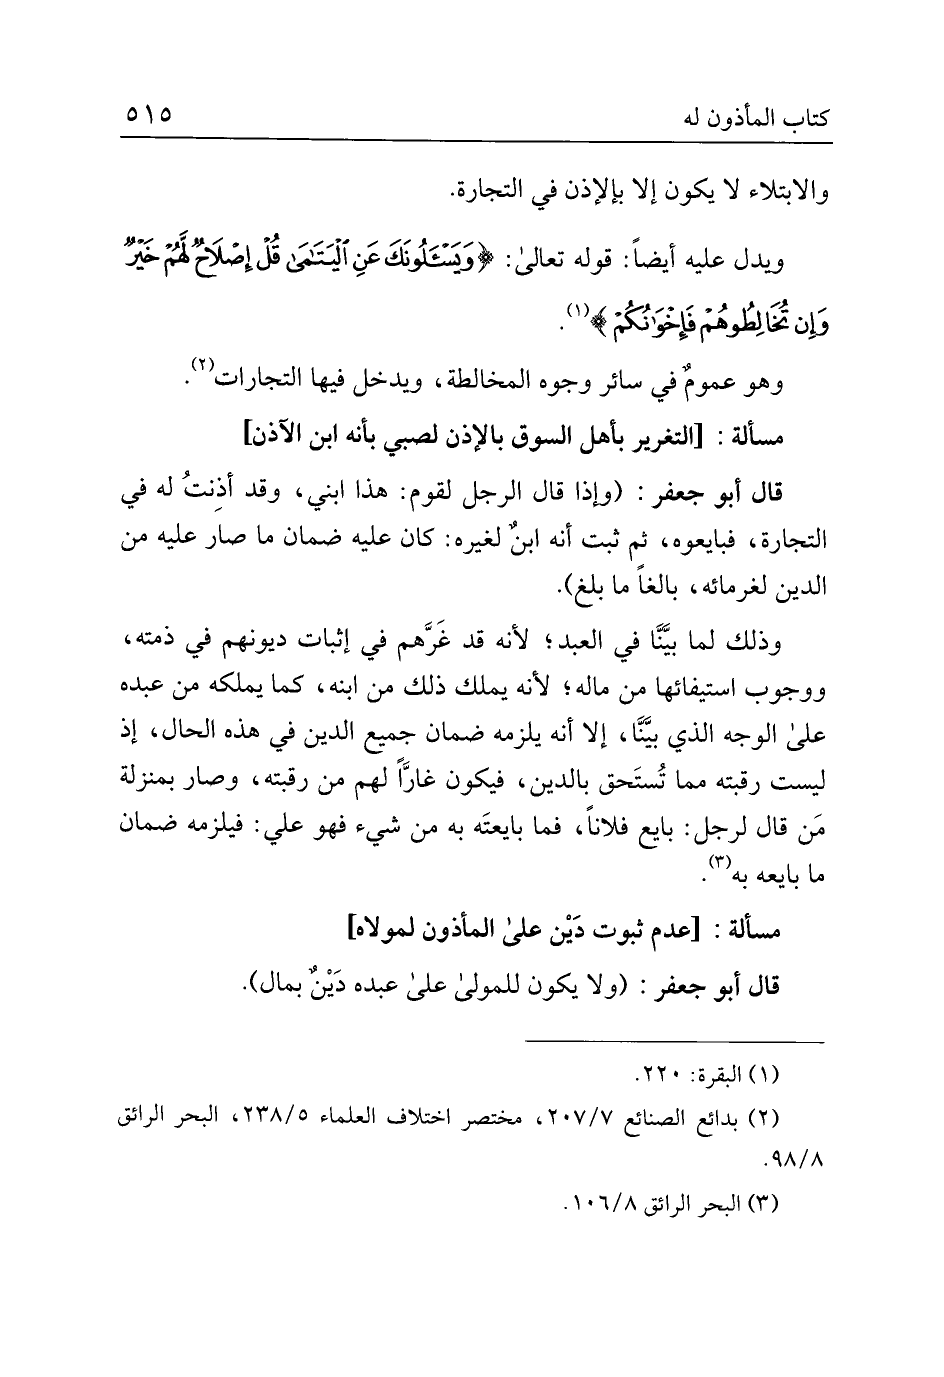 كتاب المأذون له ٥١٥
والابتلاء لا يكون إلا بالإذن في التجارة.
ويدل عليه أيضاً: قوله تعالىٰ: ﴿وَيَسْـَٔلُونَكَ عَنِ ٱلْيَتَٰمَىٰ قُلْ إِصْلَاحٌ لَّهُمْ خَيْرٌ
وَإِن تُخَالِطُوهُمْ فَإِخْوَٰنُكُمْ﴾(١).
وهو عمومٌ في سائر وجوه المخالطة، ويدخل فيها التجارات(٢).
مسألة : [التغرير بأهل السوق بالإذن لصبي بأنه ابن الآذن]
قال أبو جعفر : (وإذا قال الرجل لقوم: هذا ابني، وقد أذِنتُ له في
التجارة، فبايعوه، ثم ثبت أنه ابنٌ لغيره: كان عليه ضمان ما صار عليه من
الدين لغرمائه، بالغاً ما بلغ).
وذلك لما بيَّنَّا في العبد؛ لأنه قد غَرَّهم في إثبات ديونهم في ذمته،
ووجوب استيفائها من ماله؛ لأنه يملك ذلك من ابنه، كما يملكه من عبده
علىٰ الوجه الذي بيَّنَّا، إلا أنه يلزمه ضمان جميع الدين في هذه الحال، إذ
ليست رقبته مما تُستَحق بالدين، فيكون غارَّاً لهم من رقبته، وصار بمنزلة
مَن قال لرجل: بايع فلاناً، فما بايعتَه به من شيء فهو علي: فيلزمه ضمان
ما بايعه به(٣).
مسألة : [عدم ثبوت دَيْن علىٰ المأذون لمولاه]
قال أبو جعفر : (ولا يكون للمولىٰ علىٰ عبده دَيْنٌ بمال).
(١) البقرة: ٢٢٠.
(٢) بدائع الصنائع ٢٠٧/٧، مختصر اختلاف العلماء ٢٣٨/٥، البحر الرائق
٩٨/٨.
(٣) البحر الرائق ١٠٦/٨.